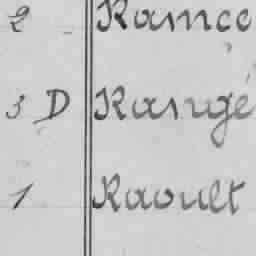 2 Ramee
3 D Rangé
1 Raoult